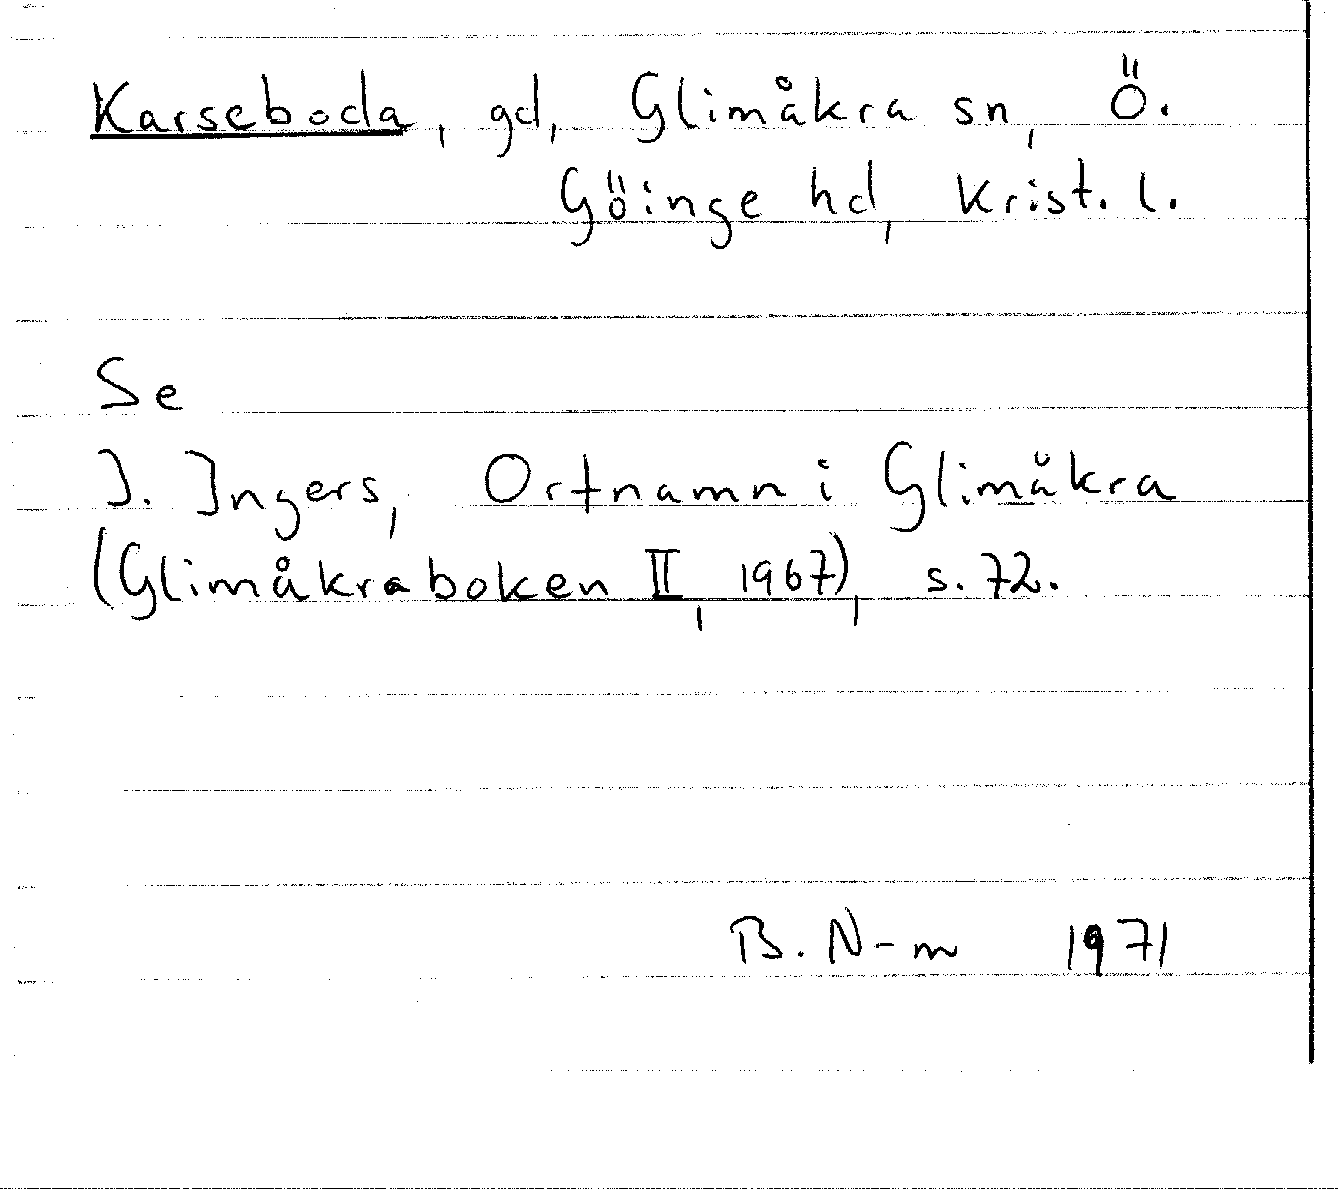 Karseboda, gd, Glimåkra sn, Ö.
Göinge hd, Krist. l.
Se
I. Ingers, Ortnamn i Glimåkra
(Glimåkraboken II, 1967), s. 72.
B. N-m 1971